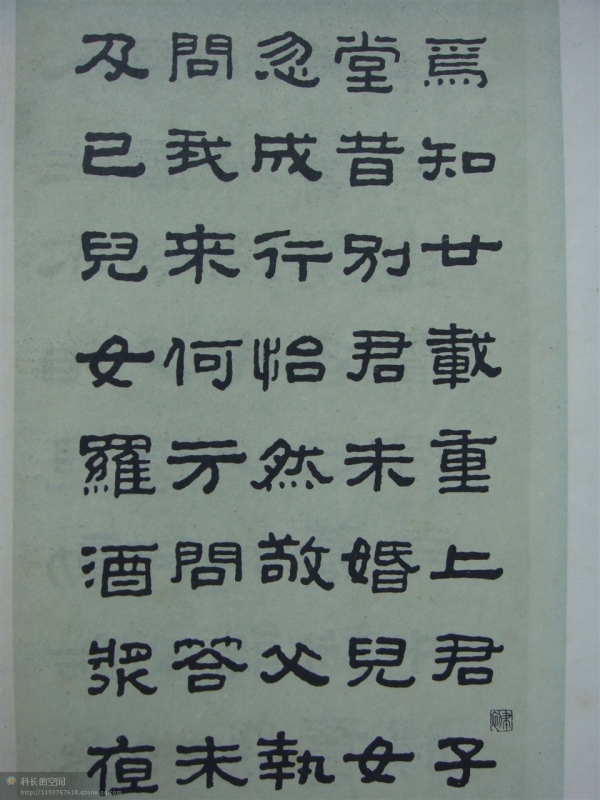 焉知廿載重上君子
堂昔別君未婚兒女
忽成行怡然敬父執
問我来何方問答未
及已兒女羅酒漿夜
科长的空间
http://1193767618.qzone.qq.com